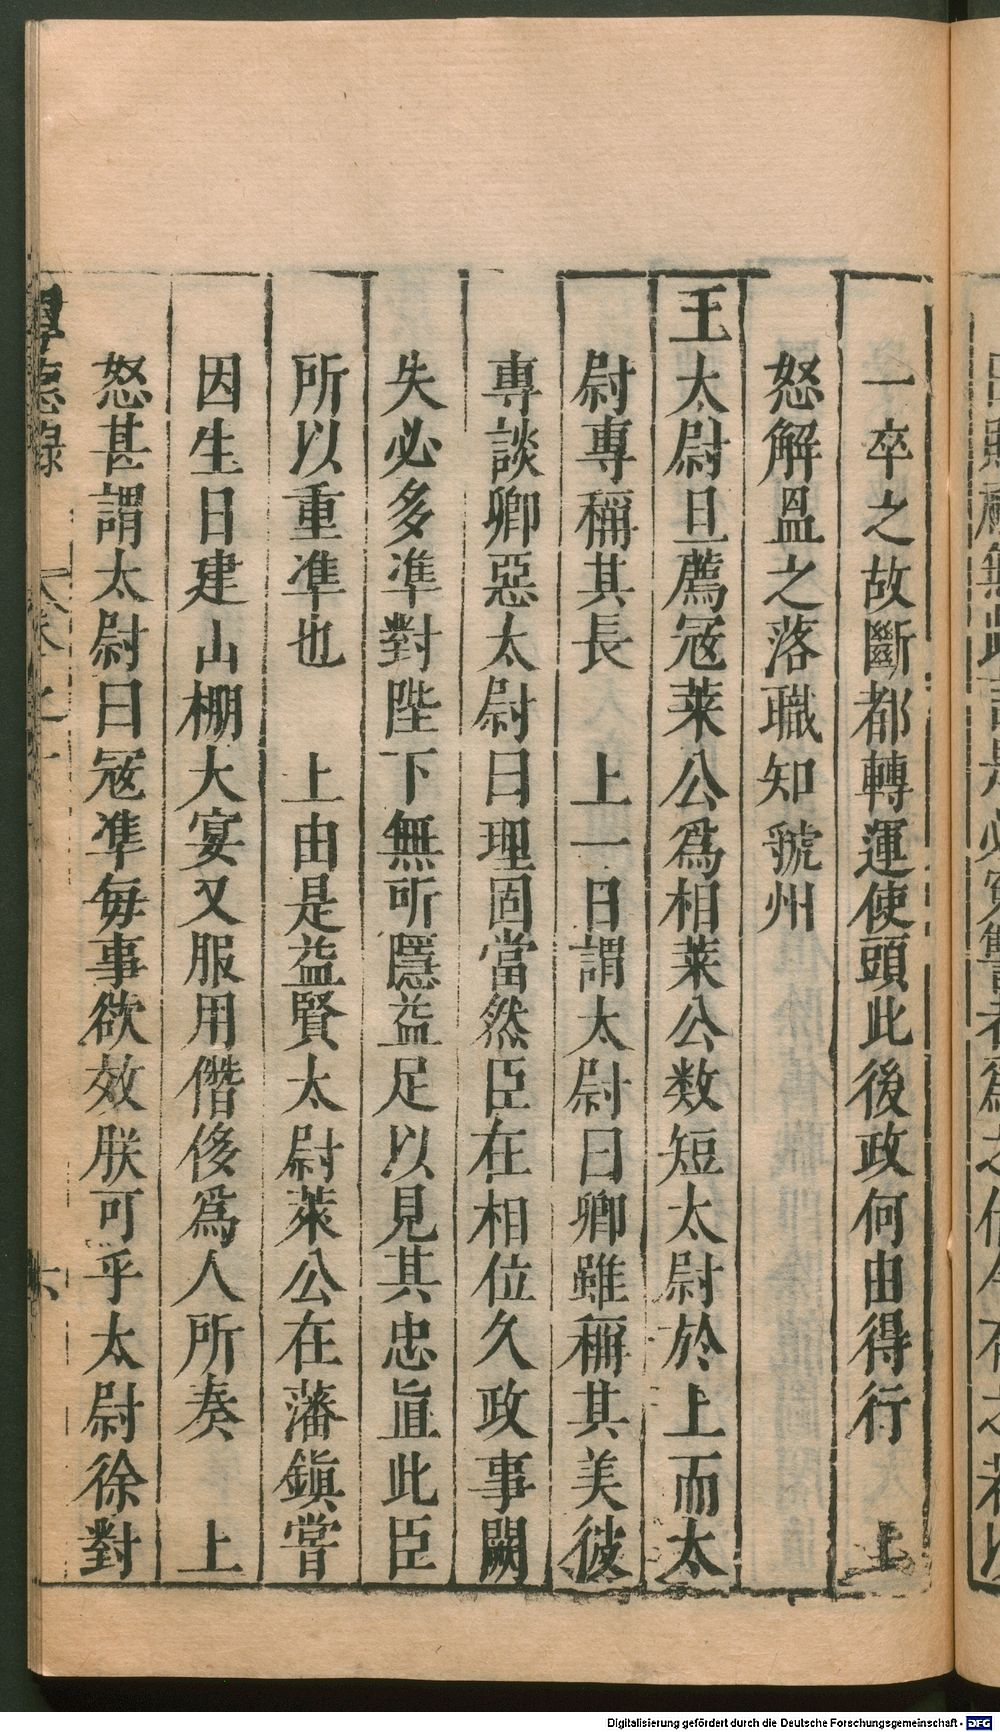 一卒之故斷都轉運使頭此後政何由得行　上
怒解温之落職知虢州
王太尉旦薦冦萊公爲相萊公数短太尉於上而太
尉專稱其長　上一日謂太尉曰卿雖稱其美彼
專談卿惡太尉曰理固當然臣在相位久政事闕
失必多凖對陛下無所隱益足以見其忠直此臣
所以重凖也　上由是益賢太尉萊公在藩鎮嘗
因生日建山棚大宴又服用僭侈爲人所奏　上
怒甚謂太尉曰冦凖每事欲效朕可乎太尉徐對
Digitalisierung gefördert durch die Deutsche Forschungsgemeinschaft - DFG